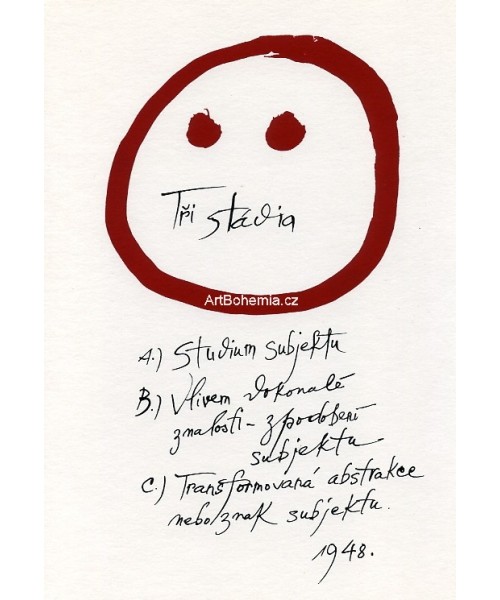 Tři stádia
ArtBohemia.cz
A.) Studium subjektu
B.) Vlivem dokonalé
znalosti - zpodobení
subjektu
C.) Transformovaná abstrakce
nebo znak subjektu.
1948.